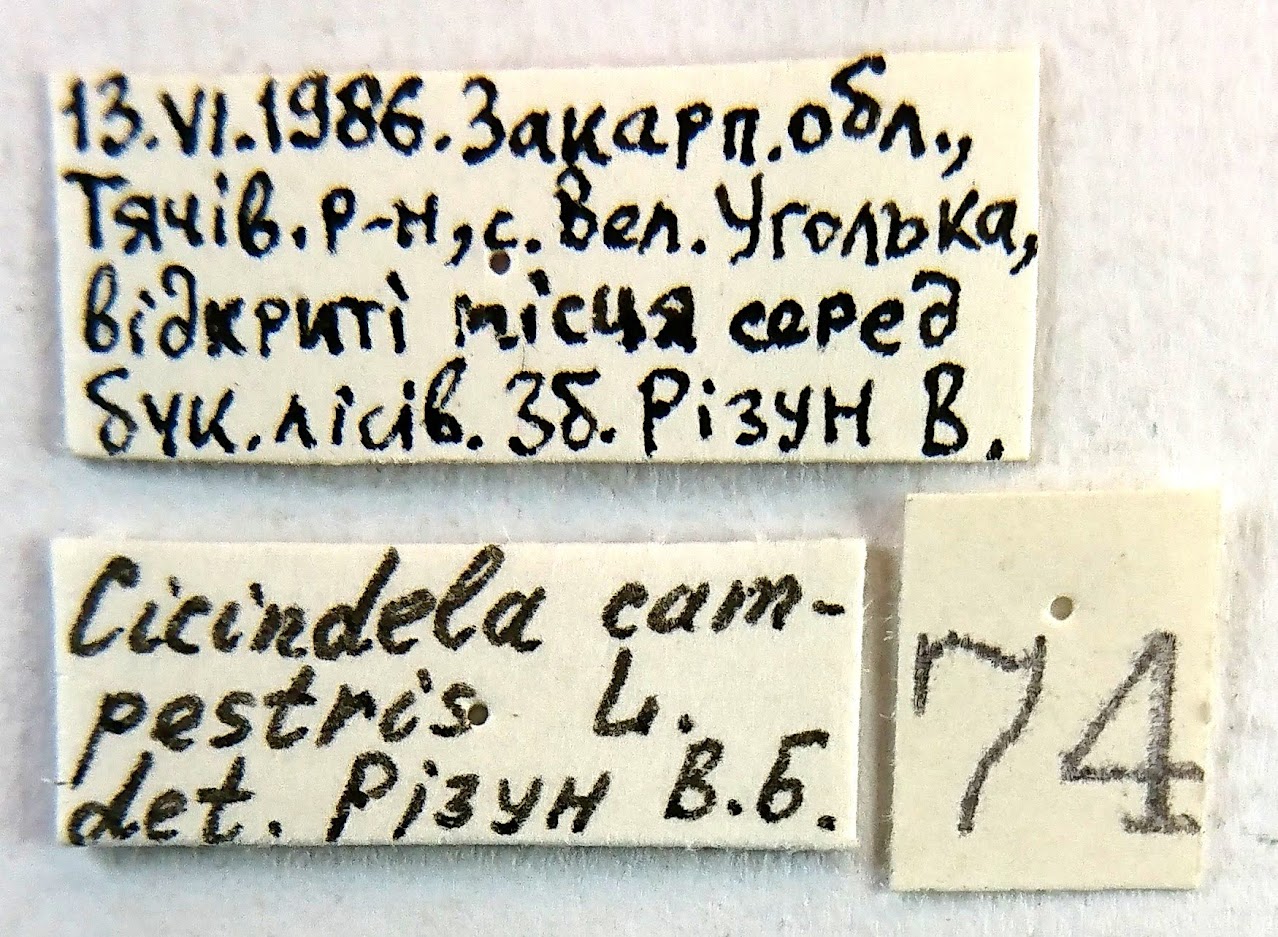 13.VI.1986. Закарп. обл.,
Тячів. р-н, с. Вел. Уголька,
відкриті місця серед
бук. лісів. Зб. Різун В.
Cicindela cam-
pestris L.
det. Різун В.Б.
74